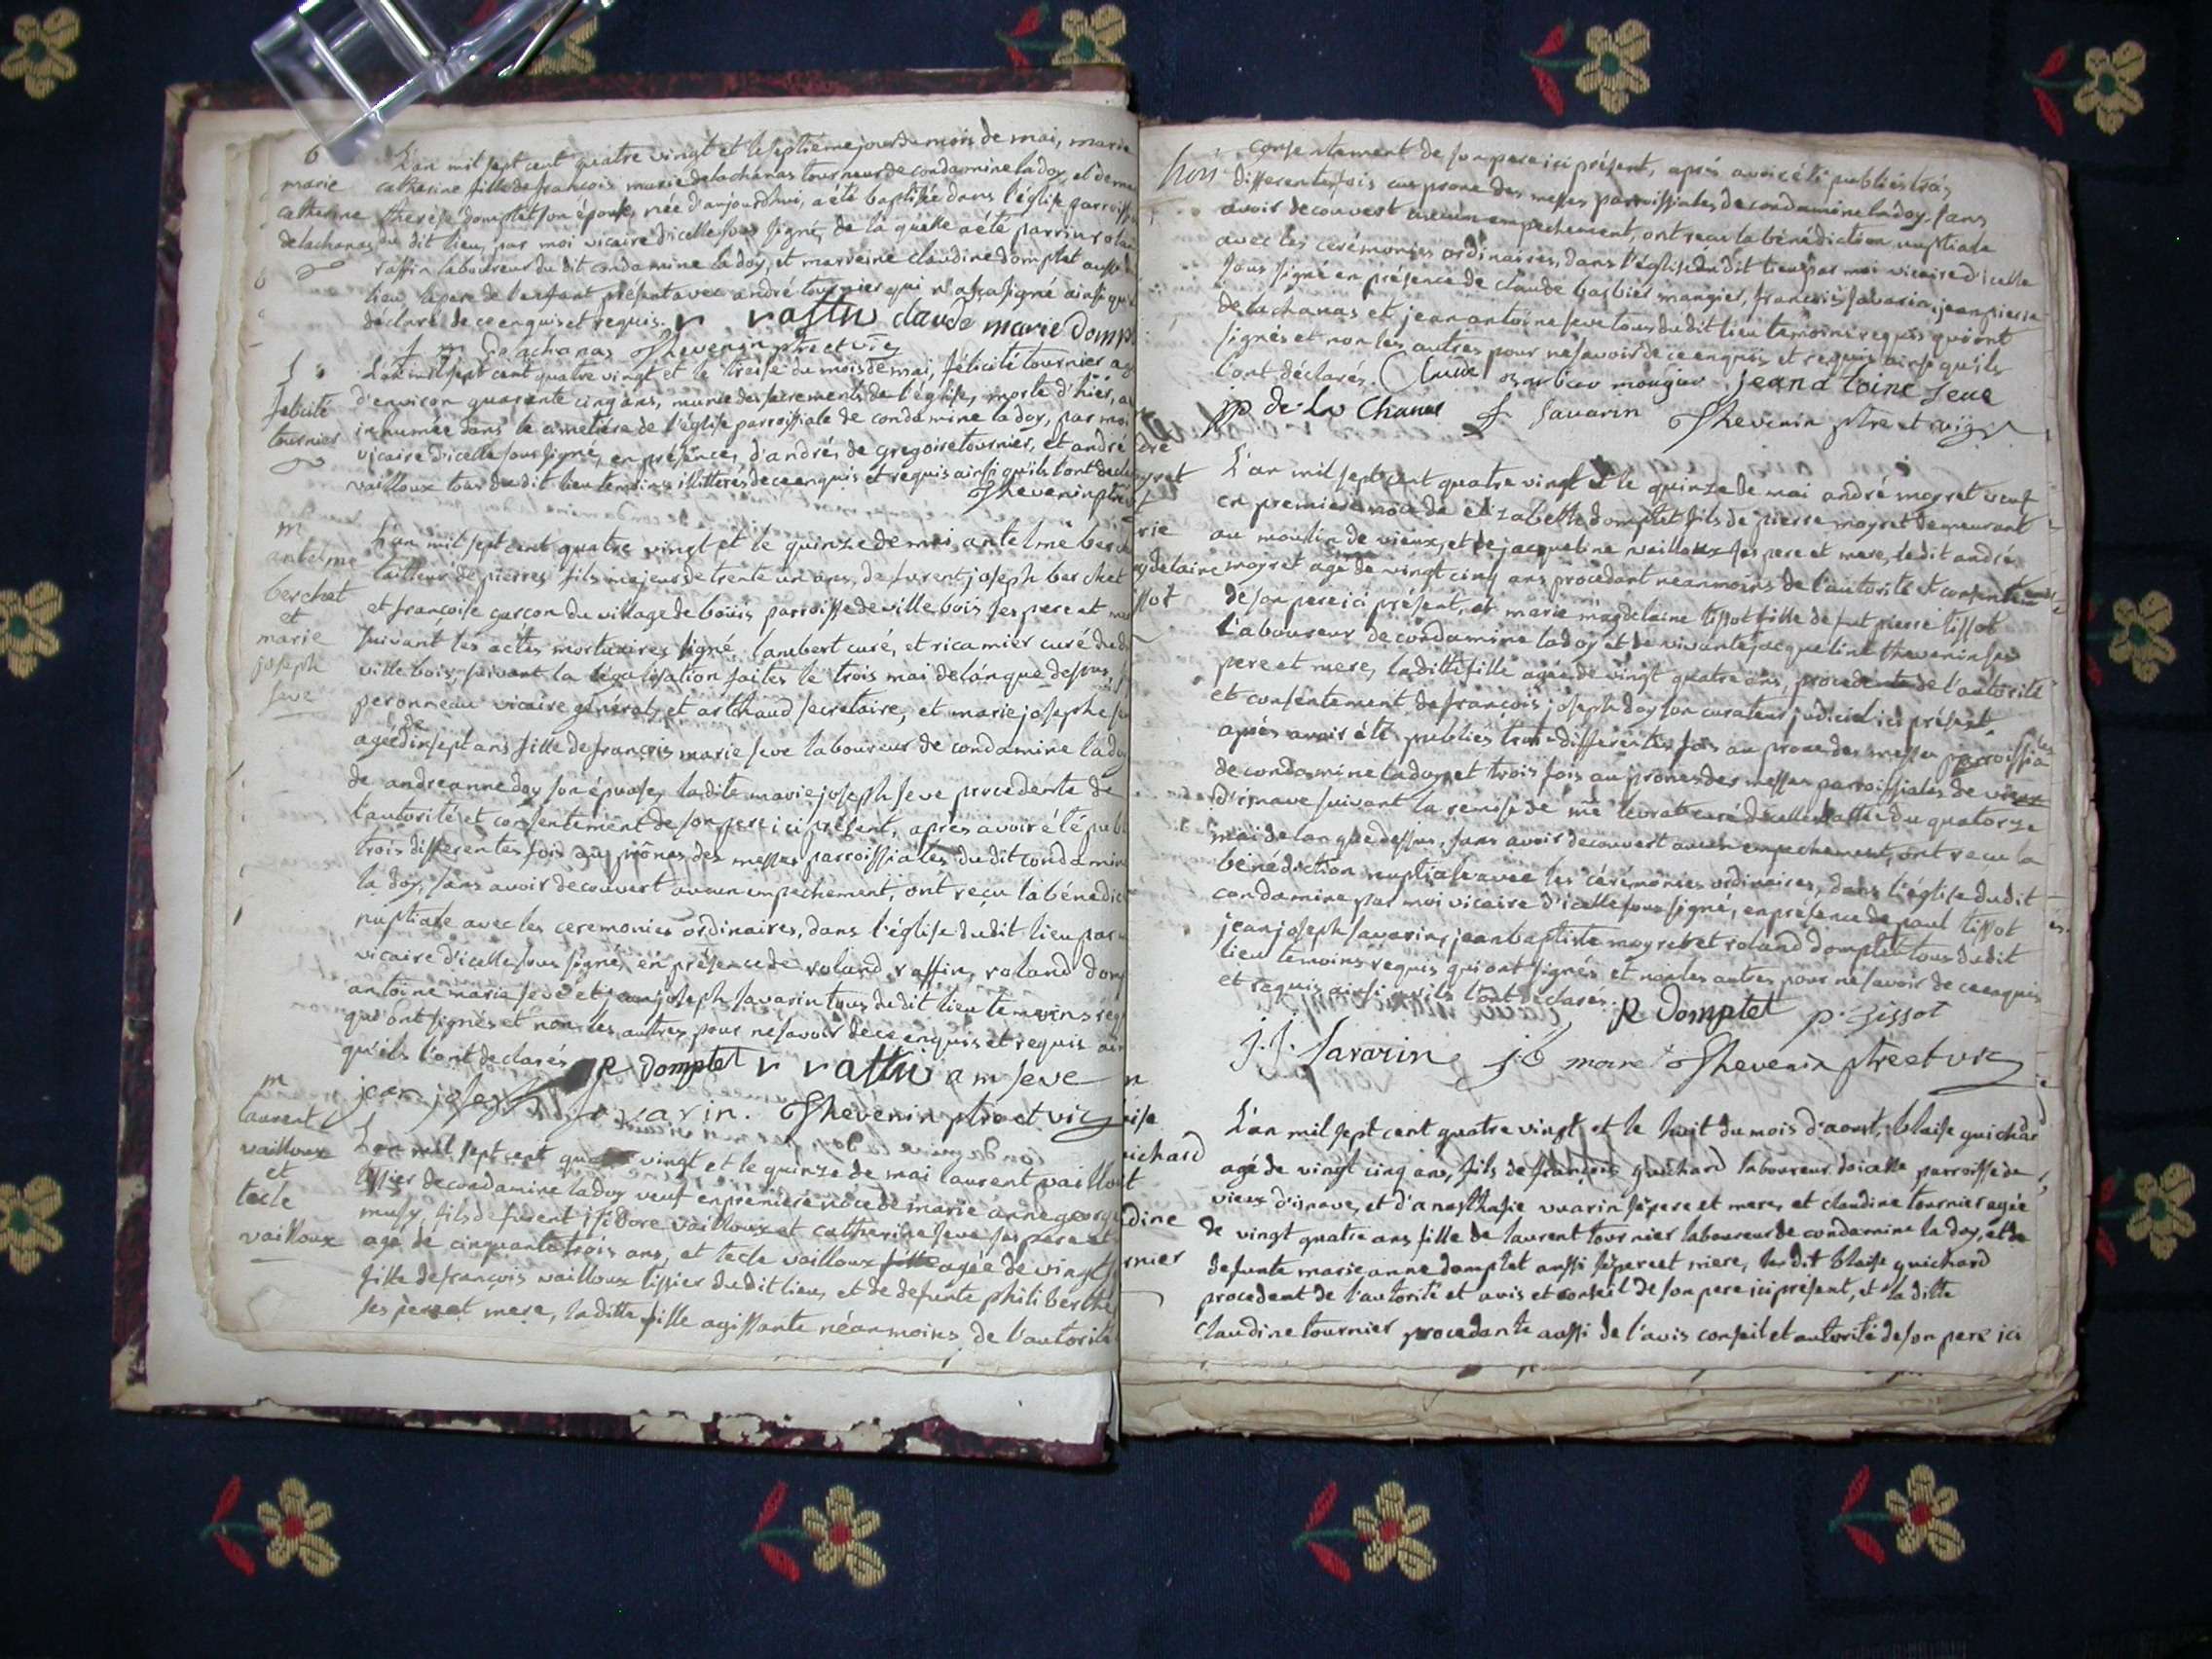 b
marie
catherine
delachanas
L'an mil sept cent quatre vingt et le septieme jour du mois de mai, marie
catherine fille de francois marie delachanas tourneur de condamine la doy, et de me
therese domptet son épouse, née d'aujourdhui, a été baptisée dans l'église parroiss
du dit lieu, par moi vicaire d'icelle sous signé, de la quelle a été parrin rolan
raffin laboureur du dit condamine la doy, et marreine claudine domptet aussi du
lieu, le pere de l'enfant présent avec andré tournier qui n'a pas signé ainsi qu'il
déclaré de ce enquis et requis. r raffin claude marie dompt
f m delachanas Thevenin ptre et vic
S
felicité
tournier
L'an mil sept cent quatre vingt et le treise du mois de mai, félicité tournier ag
d'environ quarente cinq ans, munie des sacrements de l'église, morte d'hier, a
inhumée dans le cimetiere de l'église parroissiale de condamine la doy, par moi
vicaire d'icelle sous signé, en présence, d'andré, de gregoire tournier, et andré
vailloux tous du dit lieu temoins illitterés de ce enquis et requis ainsi qu'ils l'ont decla
Thevenin ptre
m
antelme
berchet
et
marie
joseph
seve
L'an mil sept cent quatre vingt et le quinze de mai, antelme berche
tailleur de pierres, fils majeur de trente un ans, de furent joseph berchet
et françoise garçon du village de bouis parroisse de ville bois ses pere et me
suivant les actes mortuaires signé, lambert curé, et ricamier curé dud
ville bois, suivant la légalisation faites le trois mai de l'an que dessus,
peronneau vicaire général, et arthaud secretaire, et marie josephe se
agée de dix sept ans fille de françois marie seve laboureur de condamine la do
de andreanne doy son épouse, ladite marie joseph seve procedente de
l'autorité et consentement de son pere ici présent, après avoir été publ
trois differentes fois au prônes des messes parroissiales du dit condamin
la doy, sans avoir decouvert aucun empechement, ont reçu la bénedic
nuptiale avec les ceremonies ordinaires, dans l'église du dit lieu par
vicaire d'icelle sous signé, en présence de roland raffin, roland dom
antoine marie seve et jean joseph savarin tous du dit lieu temoins req
qui ont signés et non les autres pour ne savoir de ce enquis et requis ain
qu'ils l'ont declarés R Domptet r raffin a m seve
jean joseph savarin. Thevenin ptre et vic
m
laurent
vailloux
et
tecle
vailloux
L'an mil sept cent quatre vingt et le quinze de mai laurent vaillou
tissier de condamine la doy veuf en premiere nôce de marie anne george
musy, fils de furent isidore vailloux et catherine seve ses pere et
agé de cinquante trois ans, et tecle vailloux fille agée de vingt
fille de françois vailloux tissier du dit lieu, et de defunte philiberthe
ses pere et mere, la ditte fille agissante néanmoins de l'autorité
consentement de son pere ici présent, après avoir été publiés trois
differentes fois aux prone des messes parroissiales de condamine la doy, sans
avoir decouvert aucun empechement, ont recu la bénédiction nuptiale
avec les cérémonies ordinaires, dans l'église du dit lieu par moi vicaire d'icelle
sous signé en présence de claude barbier mangier, françois savarin, jean pierre
delachanas et jean antoine seve tous du dit lieu temoins requis qui ont
signés et non les autres pour ne savoir de ce enquis et requis ainsi qu'ils
l'ont déclarés. Claude barbier mongier jeana toine Seve
jp de la Chanas f Savarin Thevenin ptre et vic
dré
oyret
rie
gdelaine
ssot
L'an mil sept cent quatre vingt et le quinze de mai andré moyret veuf
en premiere noce de elizabetth domptet fils de pierre moyret demeurant
au moulin de vieux, et de jacqueline vailloux ses pere et mere, le dit andré
moyret agé de vingt cinq ans procedant neanmoins de l'autorité et consentem
de son pere ici présent, et marie magdelaine tissot fille de fut pierre tissot
Laboureur de condamine la doy et de vivante jacqueline thevenin ses
pere et mere, la ditte fille agée de vingt quatre ans, procedente de l'autorité
et consentement de francois joseph doy son curateur judiciel ici présent,
après avoir été publiés trois differentes fois au prone des messes parroissia
de condamine la doy, et trois fois au prônes des messes parroissiales de vieux
d'isnave suivant la remise de me levrat curé d'icelle datée du quatorze
mai de l'an que dessus, sans avoir decouvert aucun empechement, ont recu la
bénédiction nuptiale avec les cérémonies ordinaires, dans l'église du dit
condamine par moi vicaire d'icelle sous signé, en présence de paul tissot
jean joseph savarin, jean baptiste moyret et roland domptet tous du dit
lieu temoins requis qui ont signés et non les autres pour ne savoir de ce enquis
et requis ainsi qu'ils l'ont déclarés. R Domptet p. Tissot
j. j. Savarin j b moiret Thevenin ptre et vic
m
aise
uichard
et
dine
rnier
L'an mil sept cent quatre vingt et le huit du mois d'aoust, blaise guichar
agé de vingt cinq ans, fils de françois guichard laboureur doicelle parroisse de
vieux d'isnave, et d'anasthasie vuarin ses pere et mere, et claudine tournier agée
de vingt quatre ans fille de laurent tournier laboureur de condamine la doy, et de
defunte marie anne domptet aussi ses pere et mere, le dit blaise guichard
procedent de l'autorité et avis et conseil de son pere ici présent, et la ditte
claudine tournier procedante aussi de l'avis conseil et autorité de son pere ici